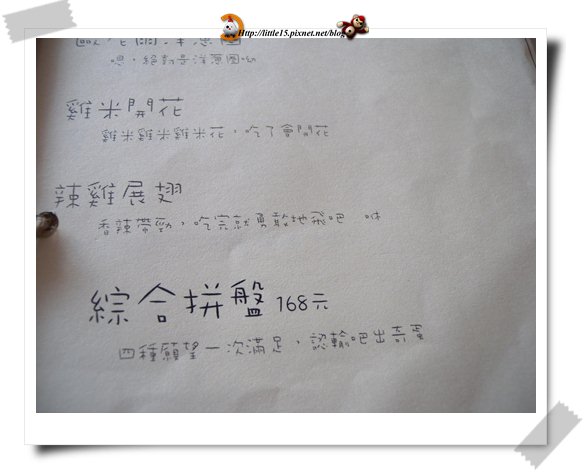 Http://little15.pixnet.net/blog
洋蔥圈
嗯，絕對是洋蔥圈呦
雞米開花
雞米雞米雞米花，吃了會開花
辣雞展翅
香辣帶勁，吃完就勇敢地飛吧 咻
綜合拼盤 168元
四種願望一次滿足，認輸吧出奇蛋